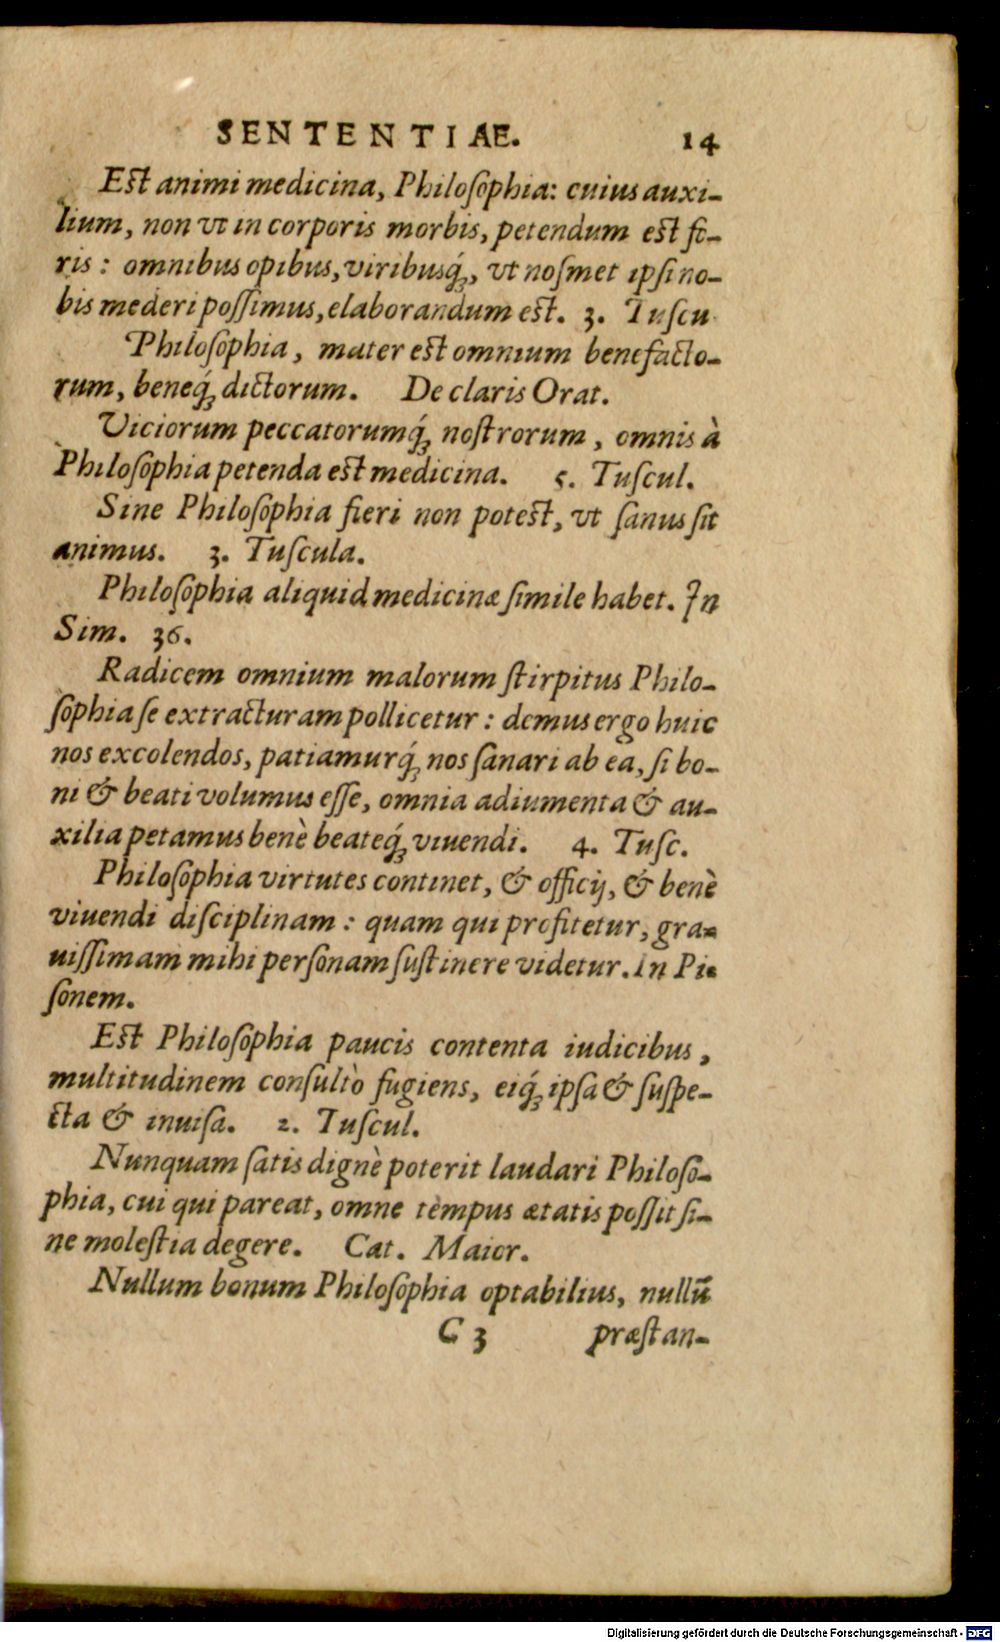 SENTENTIAE. 14
Est animi medicina, Philoſophia: cuius auxi-
lium, non vt in corporis morbis, petendum est fo-
ris: omnibus opibus, viribusq́ꝫ, vt noſmet ipſi no-
bis mederi poſſimus, elaborandum est. 3. Tuſcu
Philoſophia, mater est omnium benefacto-
rum, beneq́ꝫ dictorum. De claris Orat.
Viciorum peccatorumq́ꝫ noſtrorum, omnis à
Philoſophia petenda est medicina. 5. Tuſcul.
Sine Philoſophia fieri non potest, vt ſanus ſit
animus. 3. Tuſcula.
Philoſophia aliquid medicinæ ſimile habet. In
Sim. 36.
Radicem omnium malorum ſtirpitus Philo-
ſophia ſe extracturam pollicetur: demus ergo huic
nos excolendos, patiamurq́ꝫ nos ſanari ab ea, ſi bo-
ni & beati volumus eſſe, omnia adiumenta & au-
xilia petamus benè beateq́ꝫ viuendi. 4. Tuſc.
Philoſophia virtutes continet, & officij, & benè
viuendi diſciplinam: quam qui profitetur, gra-
uiſſimam mihi perſonam ſuſtinere videtur. In Pi-
ſonem.
Est Philoſophia paucis contenta iudicibus,
multitudinem conſultò fugiens, eiq́ꝫ ipſa & ſuſpe-
cta & inuiſa. 2. Tuſcul.
Nunquam ſatis dignè poterit laudari Philoſo-
phia, cui qui pareat, omne tempus ætatis poſſit ſi-
ne moleſtia degere. Cat. Maior.
Nullum bonum Philoſophia optabilius, nullū
C 3 præſtan-
Digitalisierung gefördert durch die Deutsche Forschungsgemeinschaft - DFG